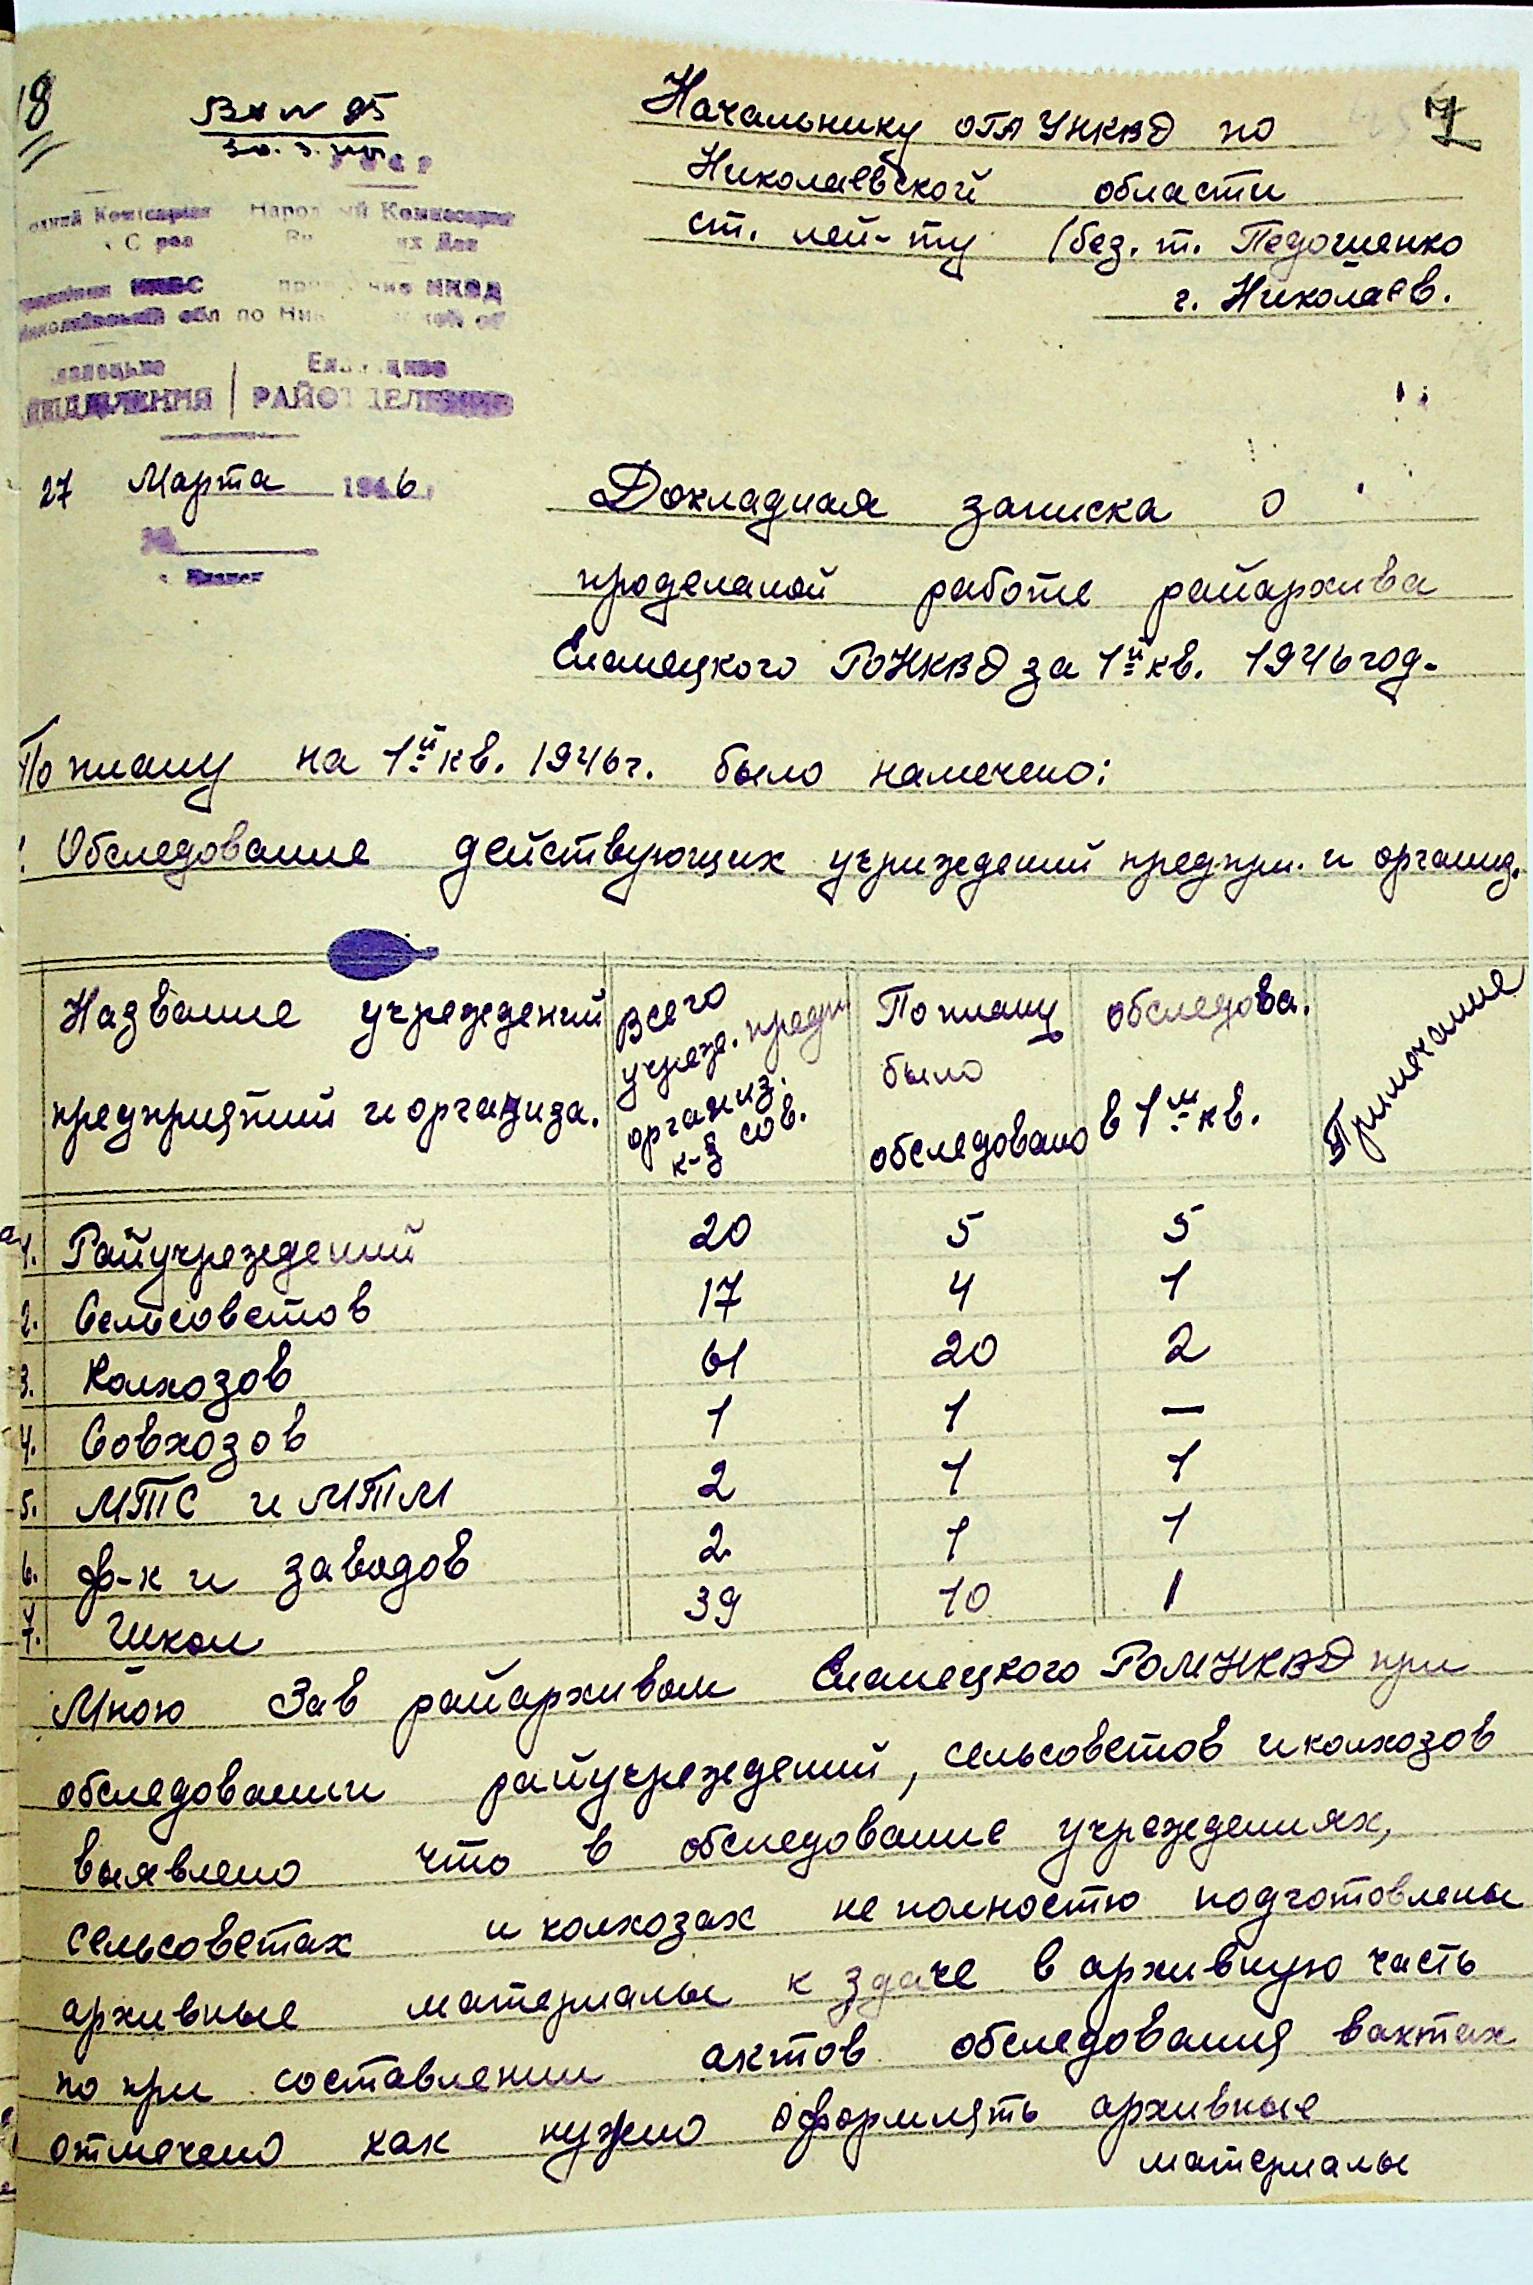 18
Вх № 95
30.3.
7
Начальнику ОГА УНКВД по
Николаевской области
ст. лей-ту /без. т. Педошенко
г. Николаев.
Народ ый Комиссариат
НКВС НКВД
обл по
РАЙОТДЕЛЕНИЕ
27 Марта 1946
Докладная записка о
проделаной работе райархива
Еланецкого РОНКВД за 1й кв. 1946 год.
По плану на 1й кв. 1946 г. было намечено:
1. Обследование действующих учреждений предпри. и организ.
Название учреждений
предприятий и организа.
Всего
учрежд. предпр
организ.
к-з сов.
По плану
было
обследовано
обследова.
в 1м кв.
Примечание
1. Райучреждений 20 5 5
2. Сельсоветов 17 4 1
3. Колхозов 61 20 2
4. Совхозов 1 1 —
5. МТС и МТМ 2 1 1
6. ф-к и заводов 2 1 1
7. Школ 39 10 1
Мною Зав райархивом Еланецкого РОМНКВД при
обследовании райучреждений, сельсоветов и колхозов
выявлено что в обследование учреждениях,
сельсоветах и колхозах не полностю подготовлены
архивные материалы к здаче в архивную часть
но при составлении актов обследования вактах
отмечено как нужно оформлять архивные
материалы